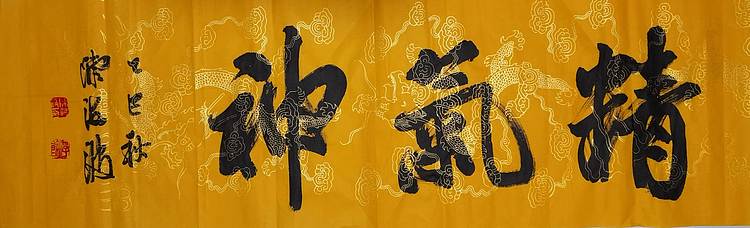 精氣神
乙巳秋